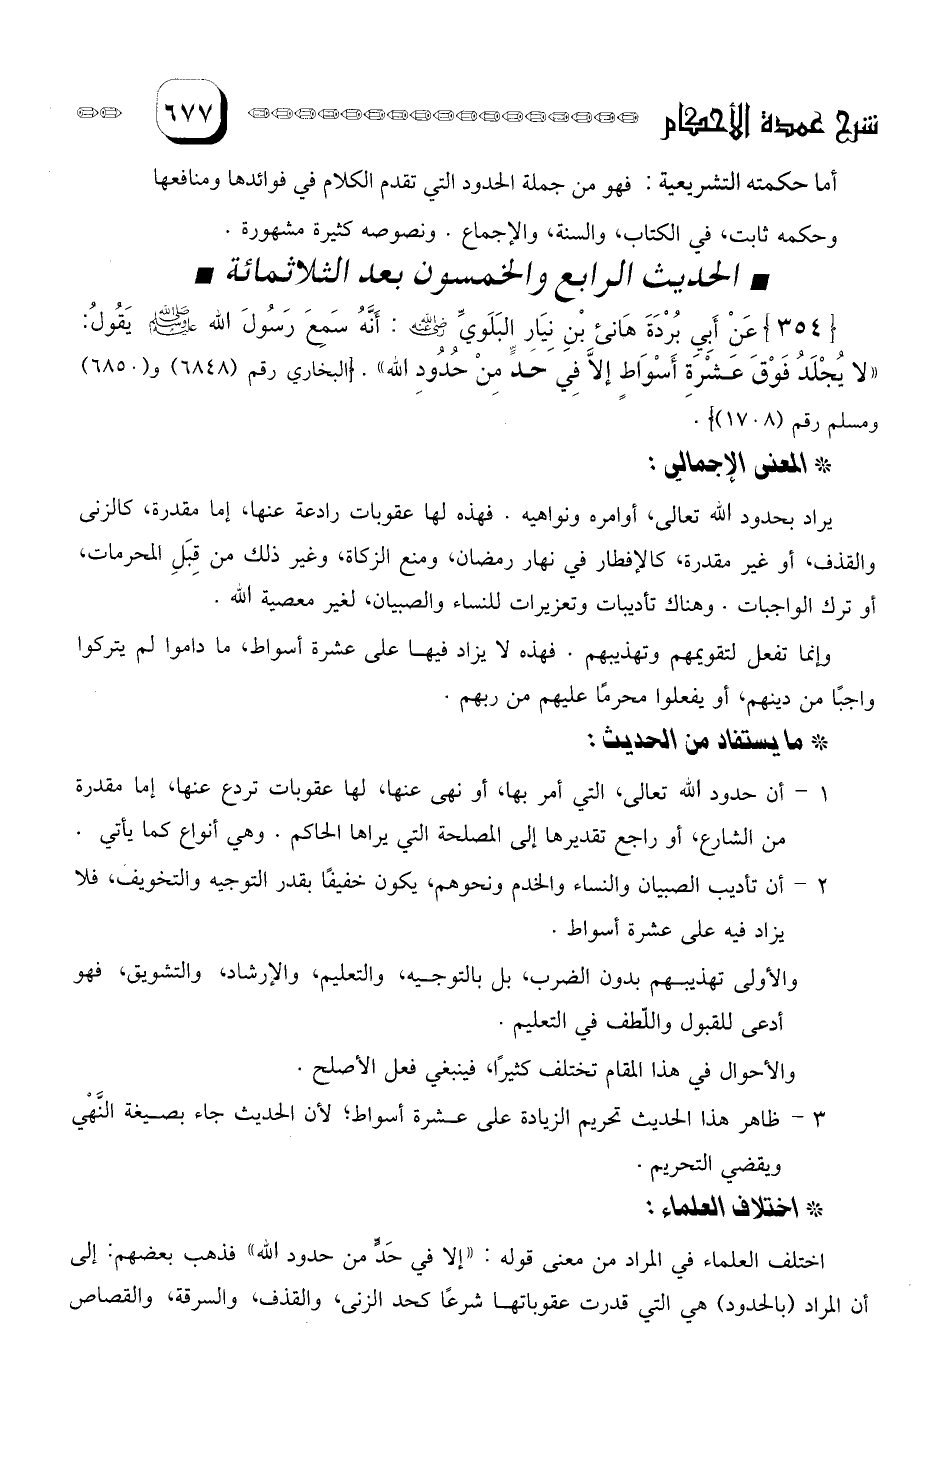 شرح عمدة الأحكام
٦٧٧
أما حكمته التشريعية : فهو من جملة الحدود التي تقدم الكلام في فوائدها ومنافعها
وحكمه ثابت، في الكتاب، والسنة، والإجماع . ونصوصه كثيرة مشهورة .
■ الحديث الرابع والخمسون بعد الثلاثمائة ■
{٣٥٤} عَنْ أبي بُرْدَةَ هَانئ بْنِ نِيَار البَلَويِّ رضي الله عنه : أَنَّهُ سَمعَ رَسُولَ الله ﷺ يَقُولُ:
«لا يُجْلَدُ فَوْقَ عَشْرَةِ أَسْوَاطٍ إلاَّ في حدٍّ منْ حُدُودِ الله» . {البخاري رقم (٦٨٤٨) و(٦٨٥٠)
ومسلم رقم (١٧٠٨)} .
* المعنى الإجمالي :
يراد بحدود الله تعالى، أوامره ونواهيه . فهذه لها عقوبات رادعة عنها، إما مقدرة، كالزنى
والقذف، أو غير مقدرة، كالإفطار في نهار رمضان، ومنع الزكاة، وغير ذلك من قِبَلِ المحرمات،
أو ترك الواجبات . وهناك تأديبات وتعزيرات للنساء والصبيان، لغير معصية الله .
وإنما تفعل لتقويمهم وتهذيبهم . فهذه لا يزاد فيها على عشرة أسواط، ما داموا لم يتركوا
واجبًا من دينهم، أو يفعلوا محرمًا عليهم من ربهم .
* ما يستفاد من الحديث :
١ - أن حدود الله تعالى، التي أمر بها، أو نهى عنها، لها عقوبات تردع عنها، إما مقدرة
من الشارع، أو راجع تقديرها إلى المصلحة التي يراها الحاكم . وهي أنواع كما يأتي .
٢ - أن تأديب الصبيان والنساء والخدم ونحوهم، يكون خفيفًا بقدر التوجيه والتخويف، فلا
يزاد فيه على عشرة أسواط .
والأولى تهذيبهم بدون الضرب، بل بالتوجيه، والتعليم، والإرشاد، والتشويق، فهو
أدعى للقبول واللّطف في التعليم .
والأحوال في هذا المقام تختلف كثيرًا، فينبغي فعل الأصلح .
٣ - ظاهر هذا الحديث تحريم الزيادة على عشرة أسواط؛ لأن الحديث جاء بصيغة النَّهْي
ويقضي التحريم .
* اختلاف العلماء :
اختلف العلماء في المراد من معنى قوله : «إلا في حَدٍّ من حدود الله» فذهب بعضهم: إلى
أن المراد (بالحدود) هي التي قدرت عقوباتها شرعًا كحد الزنى، والقذف، والسرقة، والقصاص